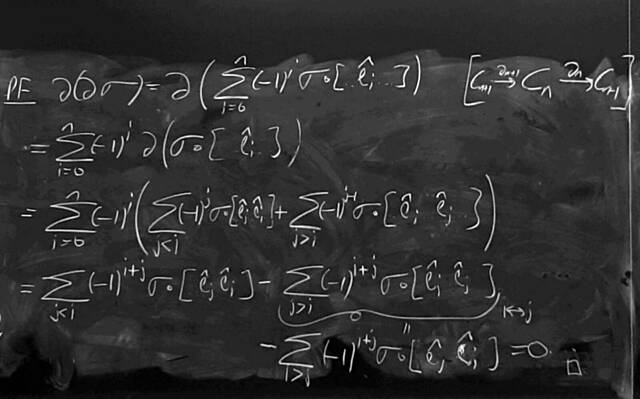 PF ∂(∂σ) = ∂(∑_{i=0}^{n} (-1)^i σ∘[..ê_i...]) [C_{n+1} →^{∂_{n+1}} C_n →^{∂_n} C_{n-1}]
= ∑_{i=0}^{n} (-1)^i ∂(σ∘[ ê_i .. ])
= ∑_{i=0}^{n} (-1)^i (∑_{j<i} (-1)^j σ∘[ê_j ê_i] + ∑_{j>i} (-1)^{j-1} σ∘[ê_i ê_j ..])
= ∑_{j<i} (-1)^{i+j} σ∘[ê_j ê_i] - ∑_{j>i} (-1)^{i+j} σ∘[ê_i ê_j]
i↔j
- ∑_{i>j} (-1)^{i+j} σ∘[ê_j ê_i] = 0. □